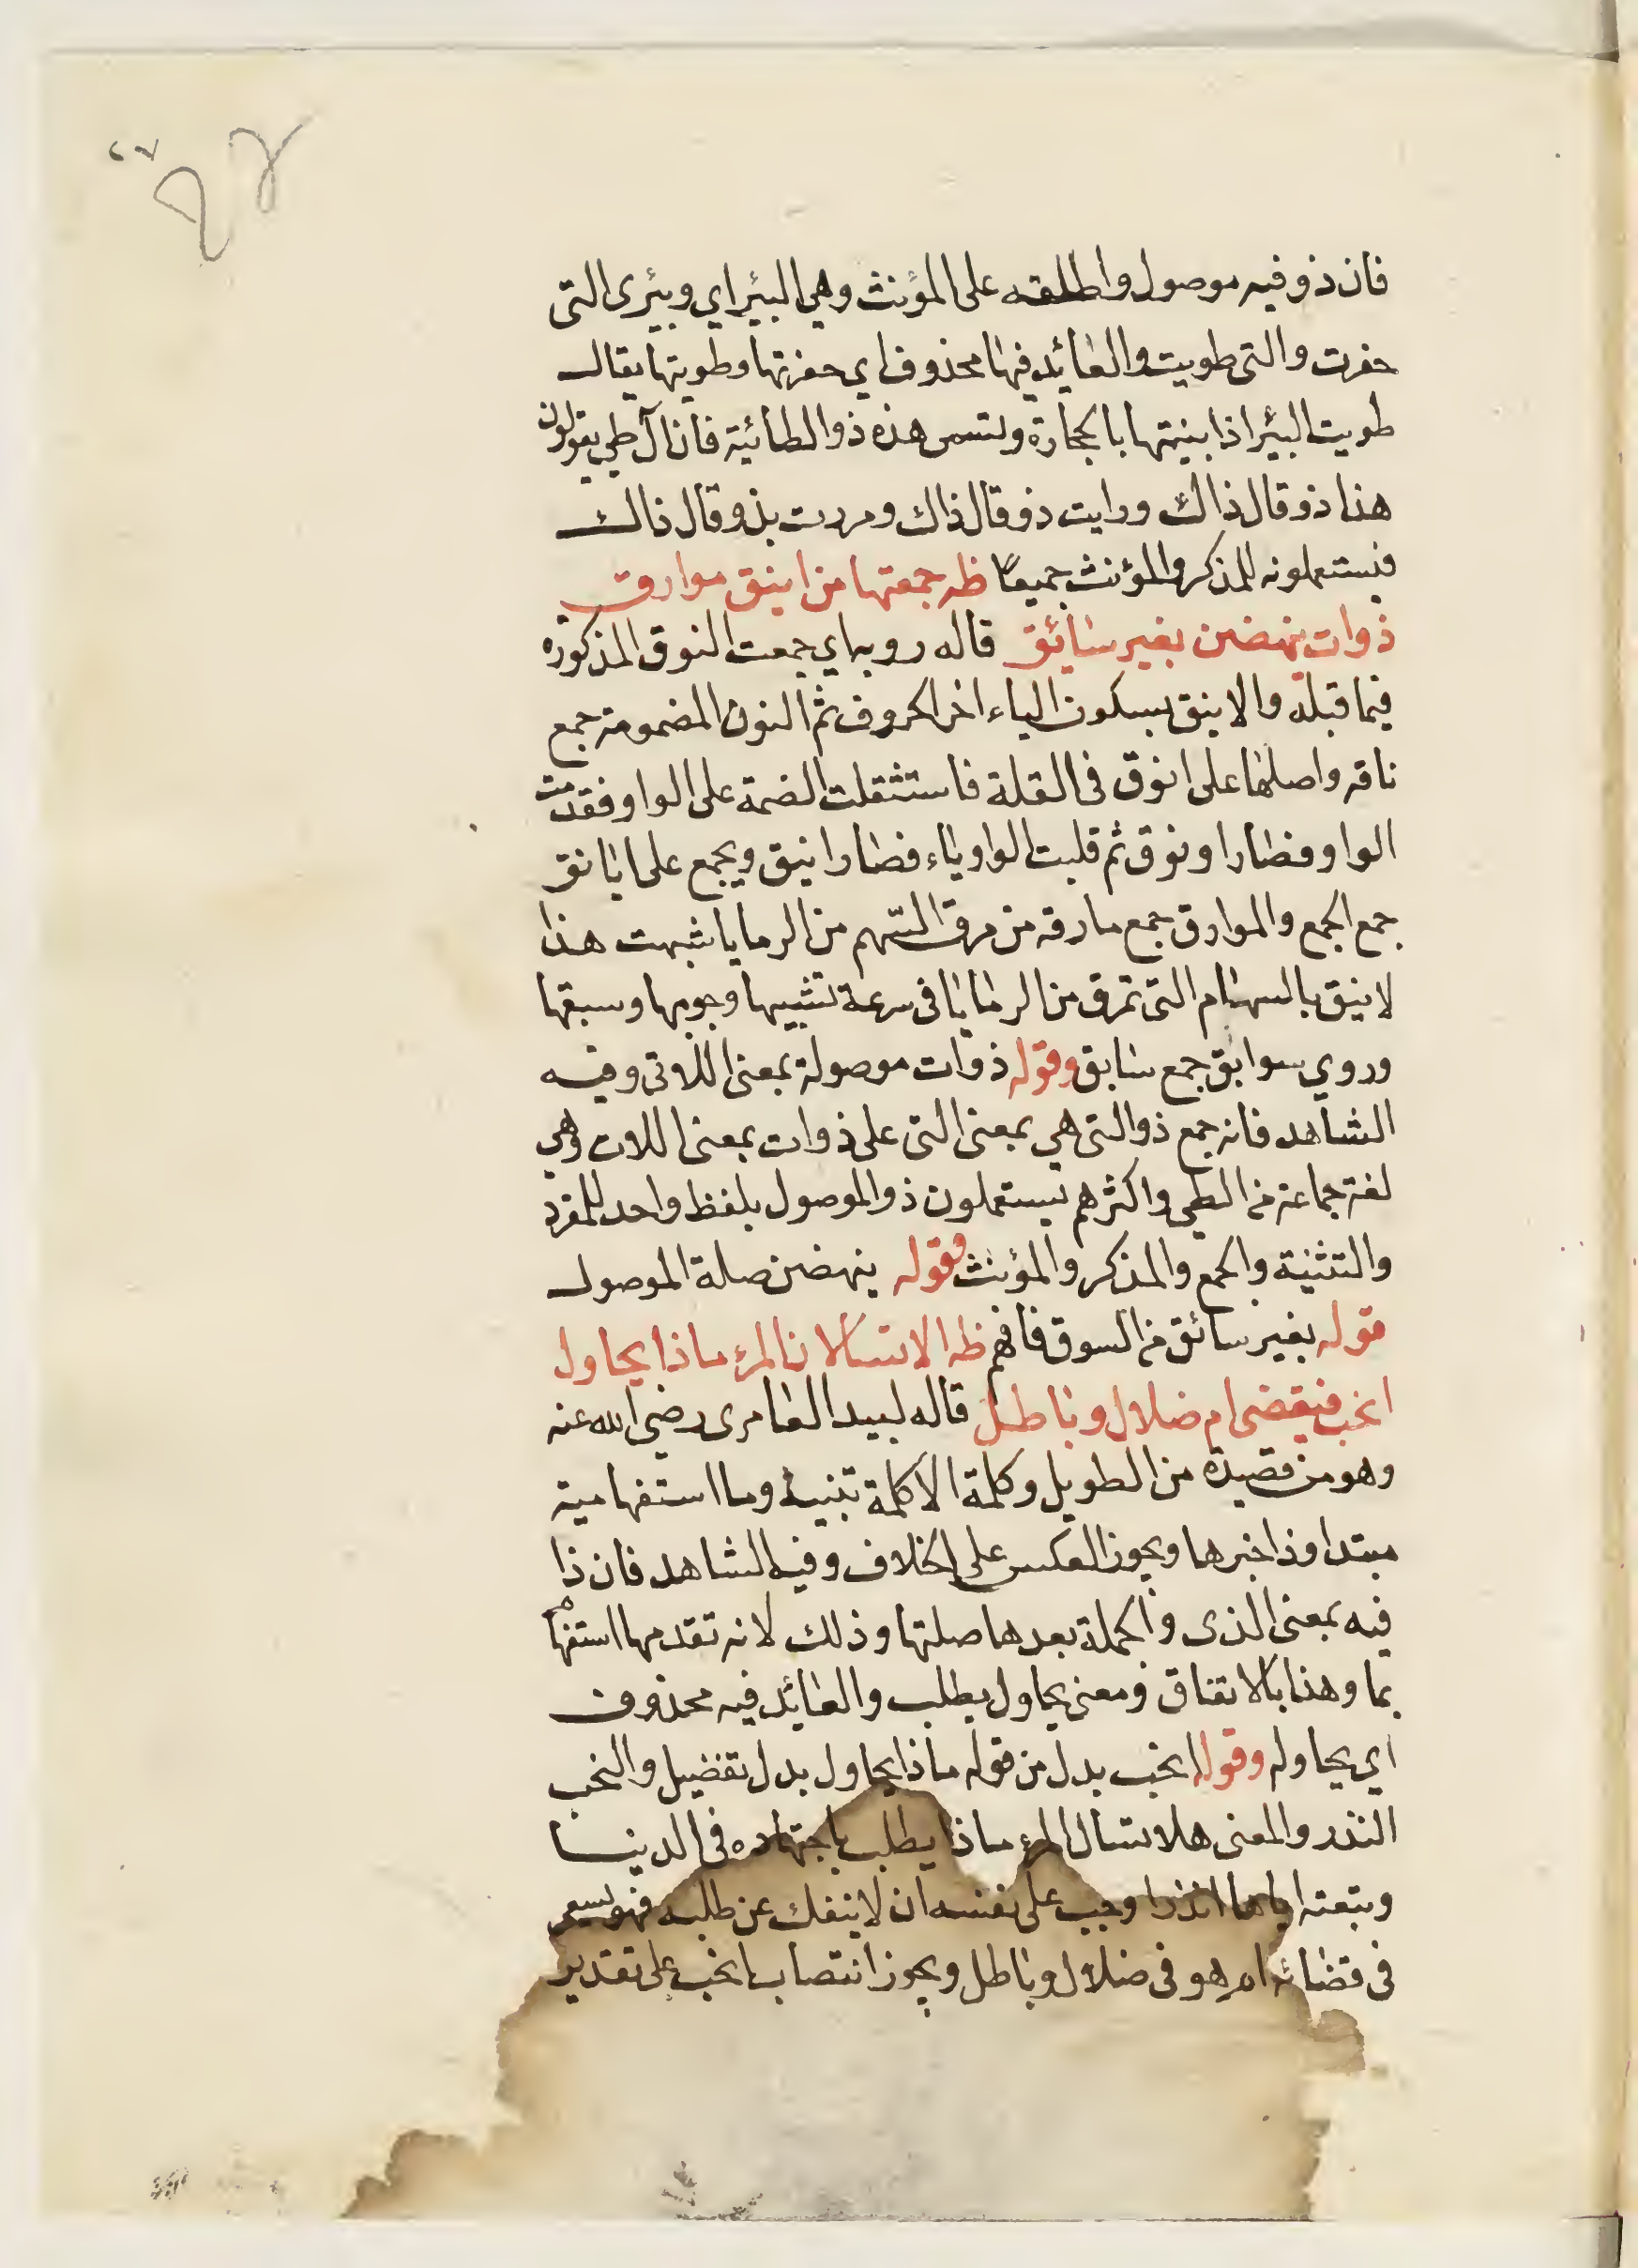 ٢٧
فان ذو فيه موصول واطلقه على المؤنث وهي البئر اي وبئرى التى
حفرت والتى طويت والعائد فيها محذوف اي حفرتها وطويتها يقال
طويت البئر اذا بنيتها بالحجارة وتسمى هذه ذو الطائية فان آل طي يقولون
هذا ذو قال ذاك ورايت ذو قال ذاك ومررت بذو قال ذالك
فيستعملونه للمذكر والمؤنث جميعا ظه جمعتها من اينق موارق
ذوات ينهضن بغير سائق قاله روبه اي جمعت النوق المذكوره
فيما قبله والاينق بسكون الياء اخر الحروف ثم النون المضمومة جمع
ناقه واصلها على انوق فى القلة فاستثقلت الضمة على الواو فقدمت
الواو فصار اونوق ثم قلبت الواو ياء فصار اينق ويجمع على ايانق
جمع الجمع والموارق جمع مارقه من مرق السهم من الرمايا شبهت هذا
لاينق بالسهام التى تمرق من الرمايا فى سرعة تشبيها وجوبها وسبقها
وروي سوابق جمع سابق وقوله ذوات موصولة بمعنى اللاتى وفيه
الشاهد فانه جمع ذو التى هي بمعنى التى على ذوات بمعنى اللات وهي
لغة جماعة من الطي واكثرهم يستعملون ذو الموصول بلفظ واحد للمفرد
والتثنية والجمع والمذكر والمؤنث فقوله ينهضن صلة الموصول
قوله بغير سائق من السوق فافهم ظه الا تسالان المرء ماذا يحاول
انحب فيقضى ام ضلال وباطل قاله لبيد العامرى رضي الله عنه
وهو من قصيدة من الطويل وكلمة الا كلمة تنبيه وما استفهامية
مبتدا وذا خبرها ويجوز العكس على الخلاف وفيه الشاهد فان ذا
فيه بمعنى الذى والجملة بعدها صلتها وذلك لانه تقدمها استفهام
بما وهذا بالاتفاق ومعنى يحاول يطلب والعائد فيه محذوف
اي يحاوله وقوله انحب بدل من قوله ماذا يحاول بدل تفضيل والنحب
النذر والمعنى هلا تسال المرء ماذا يطلب باجتهاده فى الدنيا
وبتعته اياها انذرا وجب على نفسه ان لا ينفك عن طلبه فهو يسعى
فى قضائه ام هو فى ضلال وباطل ويجوز انتصاب انحب على تقدير